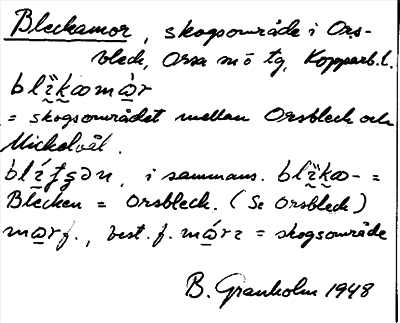 Bleckamor, skogsområde i Ors-
bleck, Orsa sn o tg, Kopparb. l.
blìkamår
= skogsområdet mellan Orsbleck och
Mickelvål.
i sammans. blìka- =
Blecken = Orsbleck. (Se Orsbleck)
best. f. = skogsområde
B. Granholm 1948